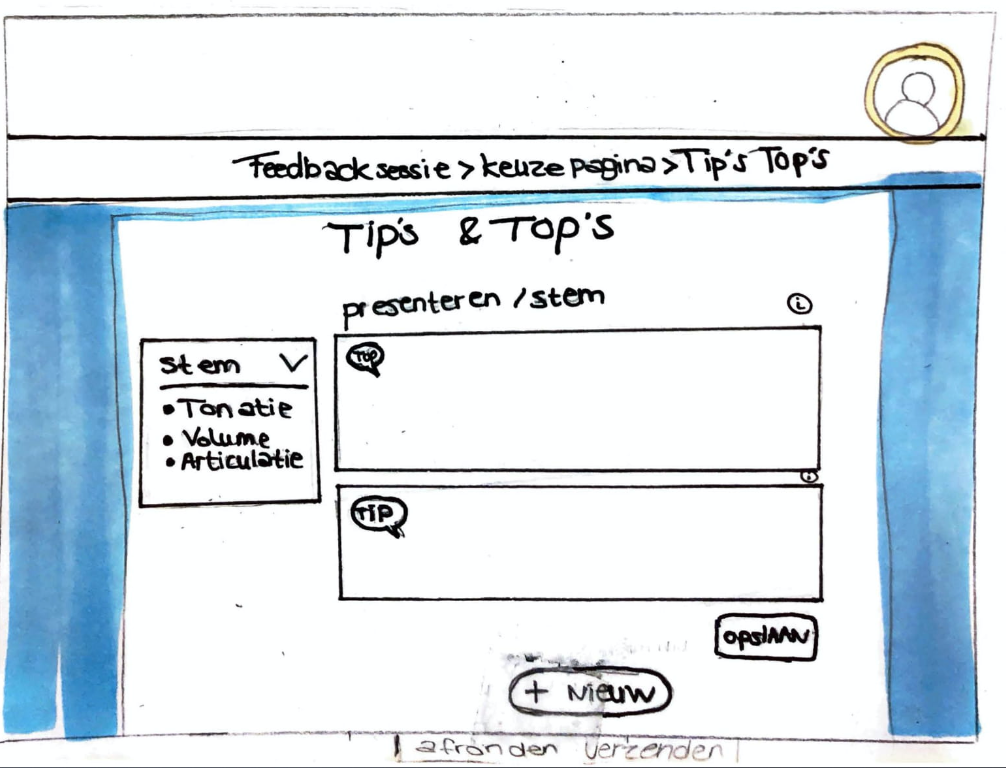 Feedback sessie > keuze pagina > Tip's Top's
Tip's & Top's
presenteren / stem
i
stem
• Tonatie
• Volume
• Articulatie
TOP
i
TIP
opslAAN
+ Nieuw
afronden verzenden